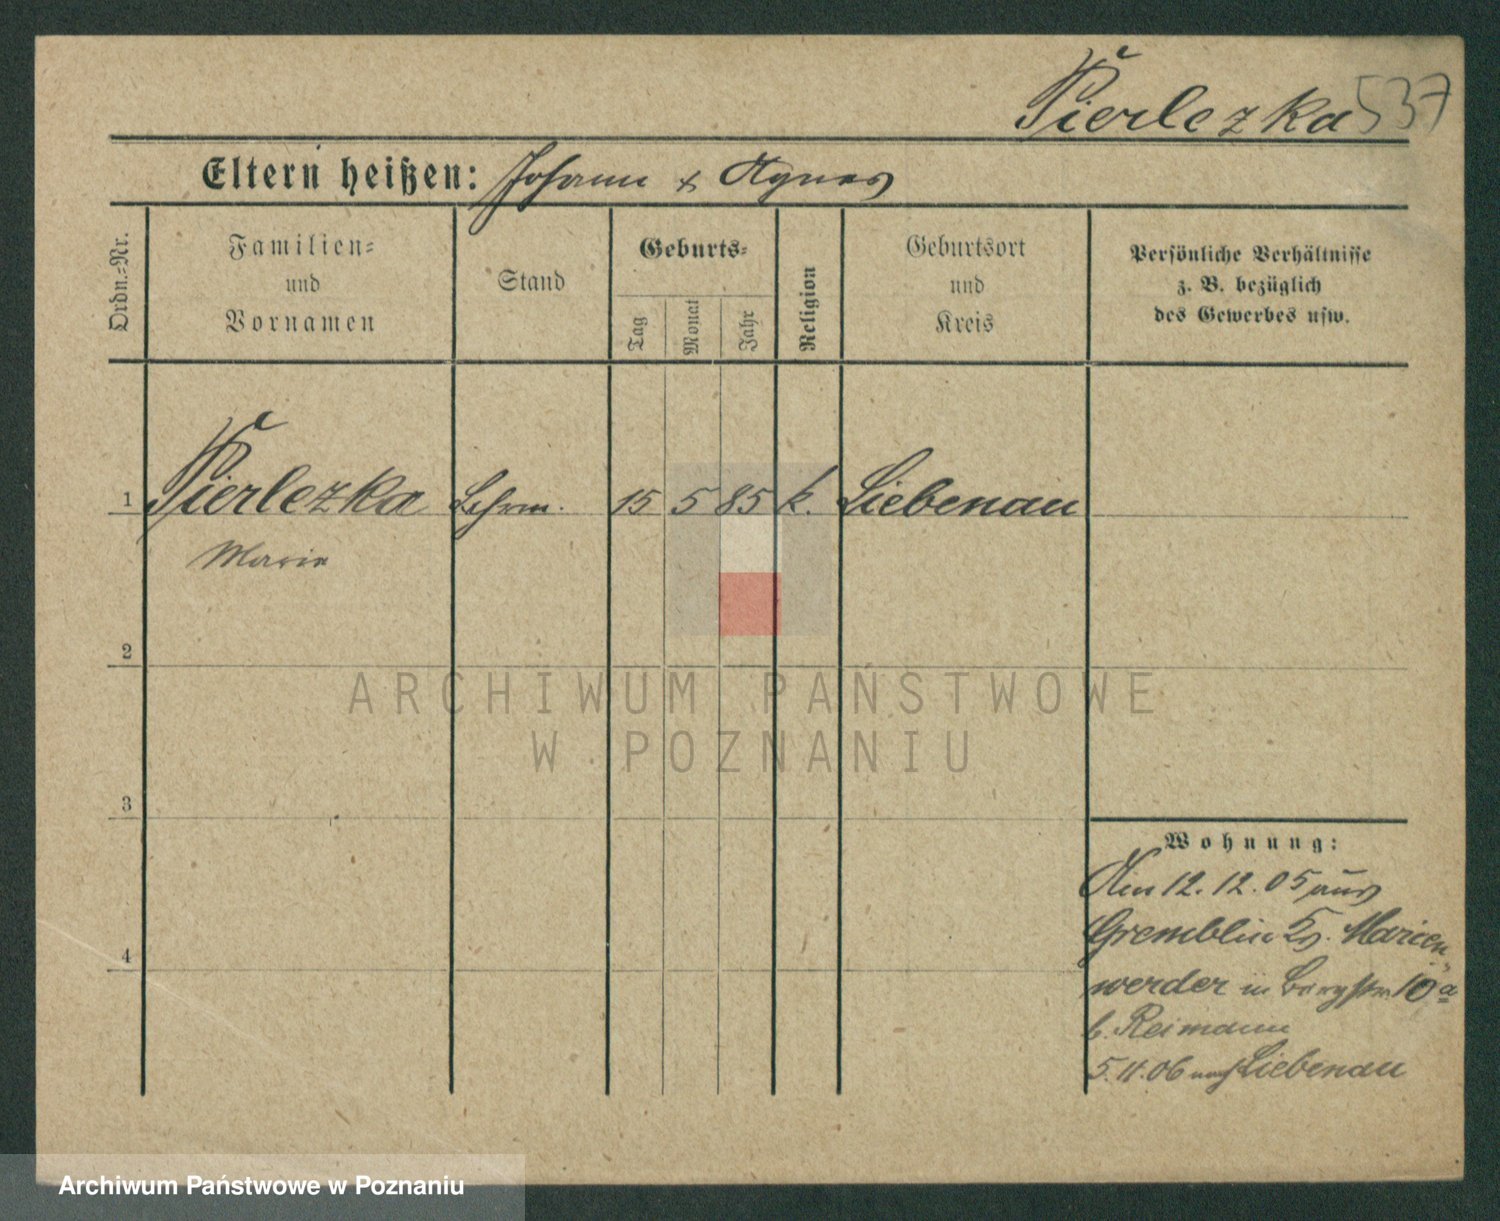 Pierlezka 537
Eltern heißen: Johann + Agnes
Ordn.=Nr.
Familien=
und
Vornamen
Stand
Geburts=
Tag
Monat
Jahr
Religion
Geburtsort
und
Kreis
Persönliche Verhältnisse
z. B. bezüglich
des Gewerbes usw.
1 Pierlezka 15 5 85 k. Liebenau
Marie
2
ARCHIWUM PAŃSTWOWE
W POZNANIU
3
Wohnung:
Am 12. 12. 05 aus
Gremblin Kr. Marien
4
werder in Bergstr. 10a
b. Reimann
06 nach Liebenau
Archiwum Państwowe w Poznaniu